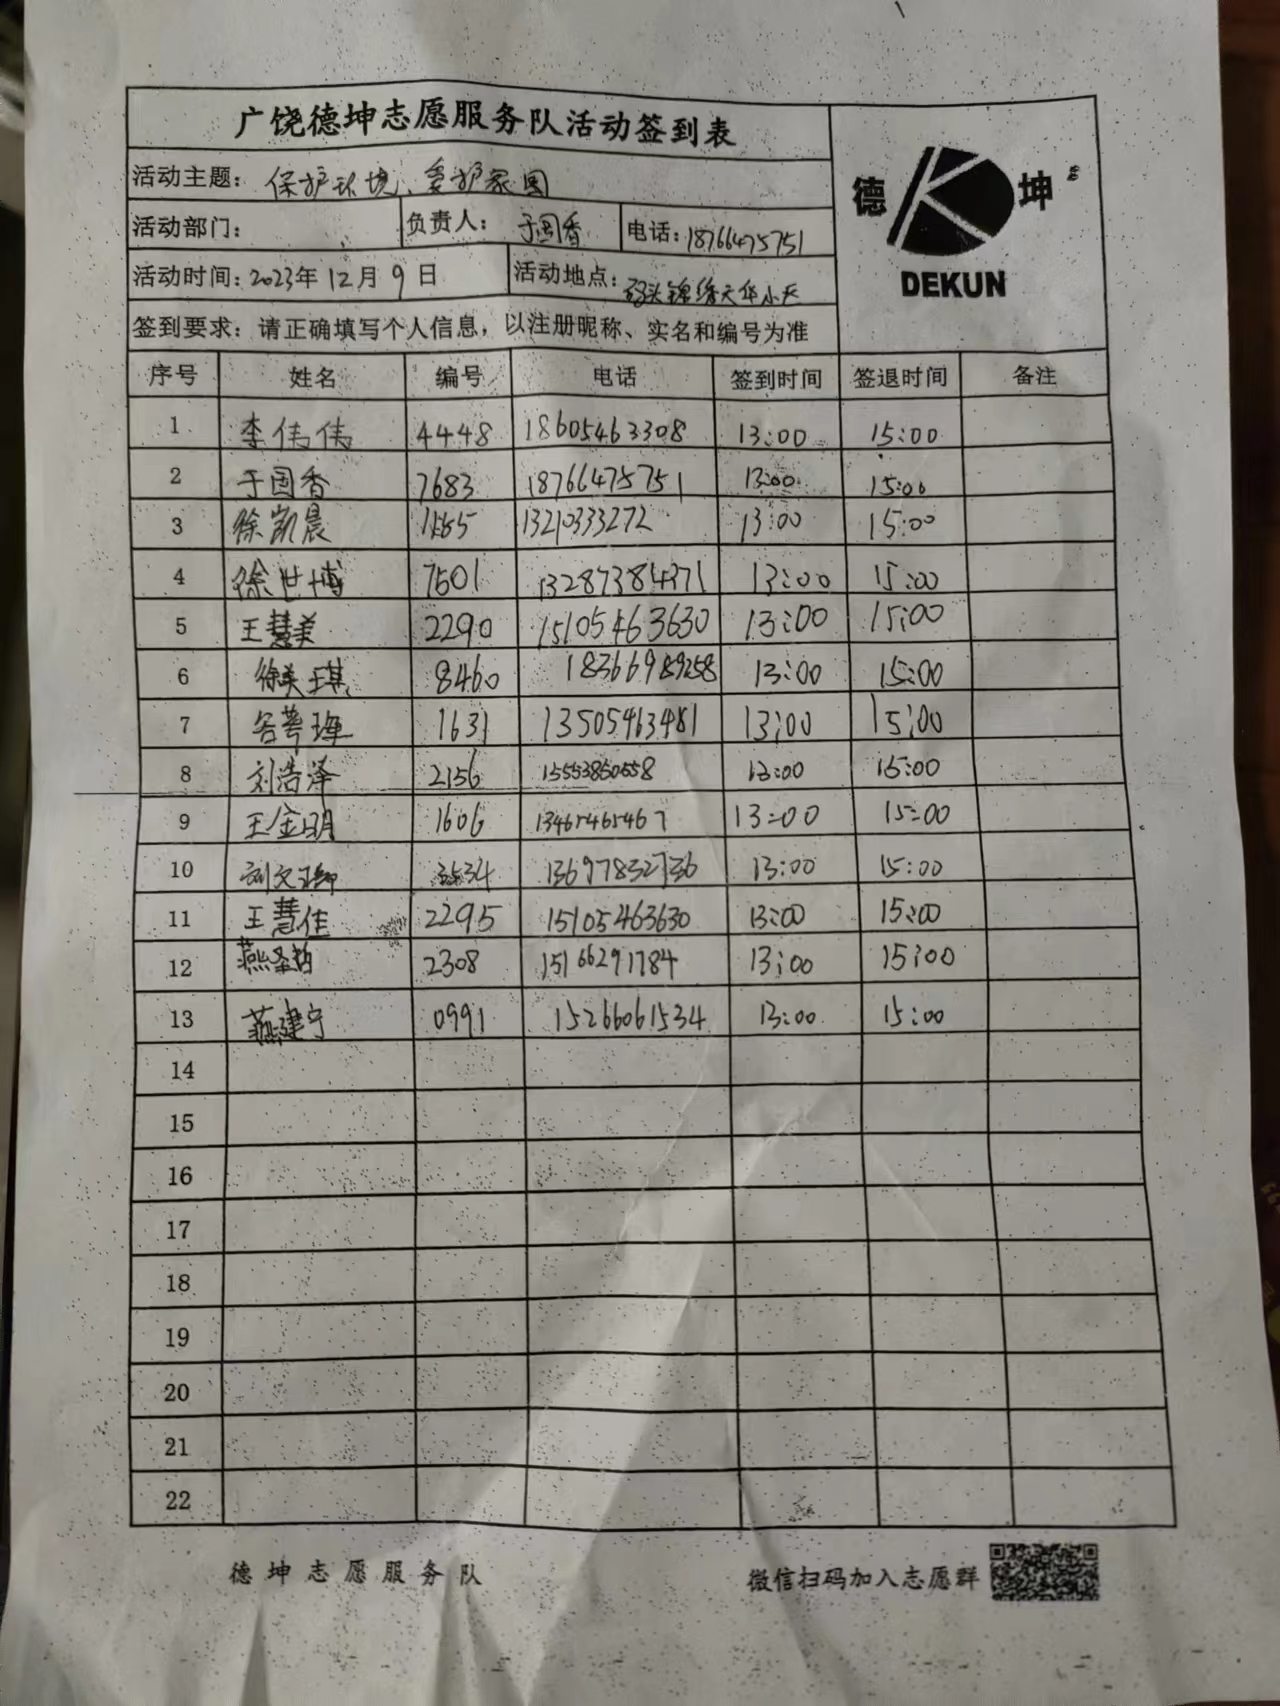 广饶德坤志愿服务队活动签到表
德 坤
DEKUN
活动主题：保护环境、爱护家园
活动部门： 负责人：于国香 电话：18766475751
活动时间：2023年12月9日 活动地点：码头锦绣天华小区
签到要求：请正确填写个人信息，以注册昵称、实名和编号为准
序号 姓名 编号 电话 签到时间 签退时间 备注
1 李伟伟 4448 18605463308 13:00 15:00
2 于国香 7683 18766475751 13:00 15:00
3 徐凯晨 13210333272 13:00 15:00
4 徐世博 7501 13287384371 13:00 15:00
5 王慧美 2290 15105463630 13:00 15:00
6 徐美琪 8460 18366989258 13:00 15:00
7 1631 13505463481 13:00 15:00
8 刘浩泽 2156 15553850558 13:00 15:00
9 王金明 1606 13465465467 13:00 15:00
10 3534 13697832736 13:00 15:00
11 王慧佳 2295 15105463630 13:00 15:00
12 2308 15166291784 13:00 15:00
13 燕建宁 0991 15266061534 13:00 15:00
14
15
16
17
18
19
20
21
22
德坤志愿服务队 微信扫码加入志愿群